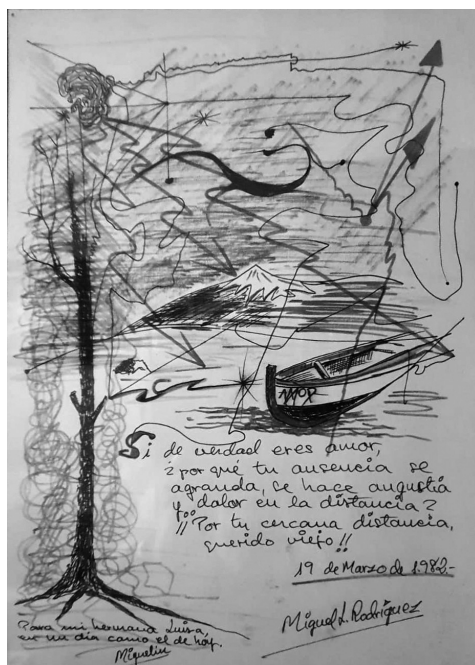 MOP
Si de verdad eres amor,
¿por qué tu ausencia se
agranda, se hace angustia
y dolor en la distancia?
¡¡Por tu cercana distancia,
querido viejo!!
19 de Marzo de 1.982-
Miguel L. Rodríguez
Para mi hermana Luisa,
en un día como el de hoy.
Miguelín